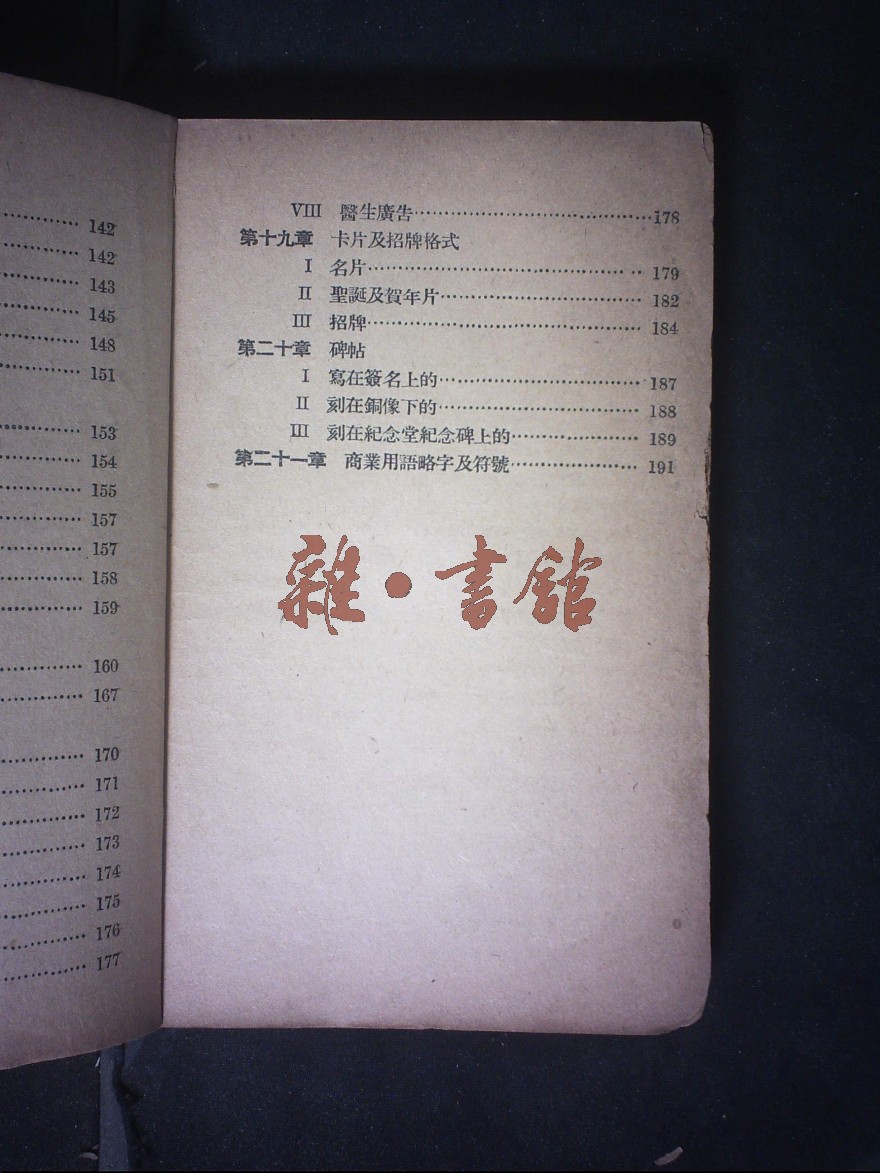 142
142
143
145
148
151
153
154
155
157
157
158
159
160
167
170
171
172
173
174
175
176
177
VIII 醫生廣告……………………………………178
第十九章 卡片及招牌格式
I 名片……………………………………… 179
II 聖誕及賀年片……………………………… 182
III 招牌………………………………………… 184
第二十章 碑帖
I 寫在簽名上的……………………………… 187
II 刻在銅像下的……………………………… 188
III 刻在紀念堂紀念碑上的…………………… 189
第二十一章 商業用語略字及符號…………………… 191
雜•書館